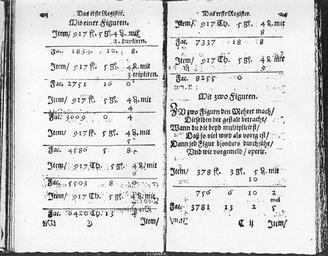 Das erste Register.
Mit einer Figuren.
Item/ 917 fl. 5 gl. 4 d. mit
2. dupliren.
Fac. 1834 10. 8.
Item/ 917 fl. 5 gl. 4 d. mit
3 tripliren.
Fac. 2751 16 0
Item/ 917 fl. 5 gl. 4 d. mit
4
Fac. 3669 0 4
Item/ 917 fl. 5 gl. 4 d. mit
5
Fac. 4586 5 8
Item/ 917 Th. 5 gl. 4 d. mit
6
Fac. 5503 8 0
Item/ 917 Th. 5 gl. 4 d. mit
7
Fac. 6420 13 4
Item/
Das erste Register.
Item/ 917 Th. 5 gl. 4 d. mit
8
Fac. 7337 18 8
Item/ 917 Th. 5 gl. 4 d. mit
9
Fac. 8255 0
Mit zwo Figuren.
Zwo Figuren der Mehrer mach/
Dieselben der gestalt betracht/
Wann du die beyd multiplicirst/
Daß so viel wird als vorg ist/
Dann jed Figur bsonders durchführ/
Und wie vorgemeld/ operir.
Item/ 378 fl. 3 gl. 5 d. mit
10
756 6 10 2
mal
Fac. 3781 13 2 5
C ij Item/